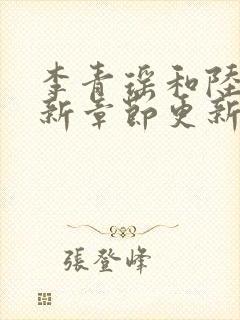 李青瑶和陸
新章節更新
張登峰